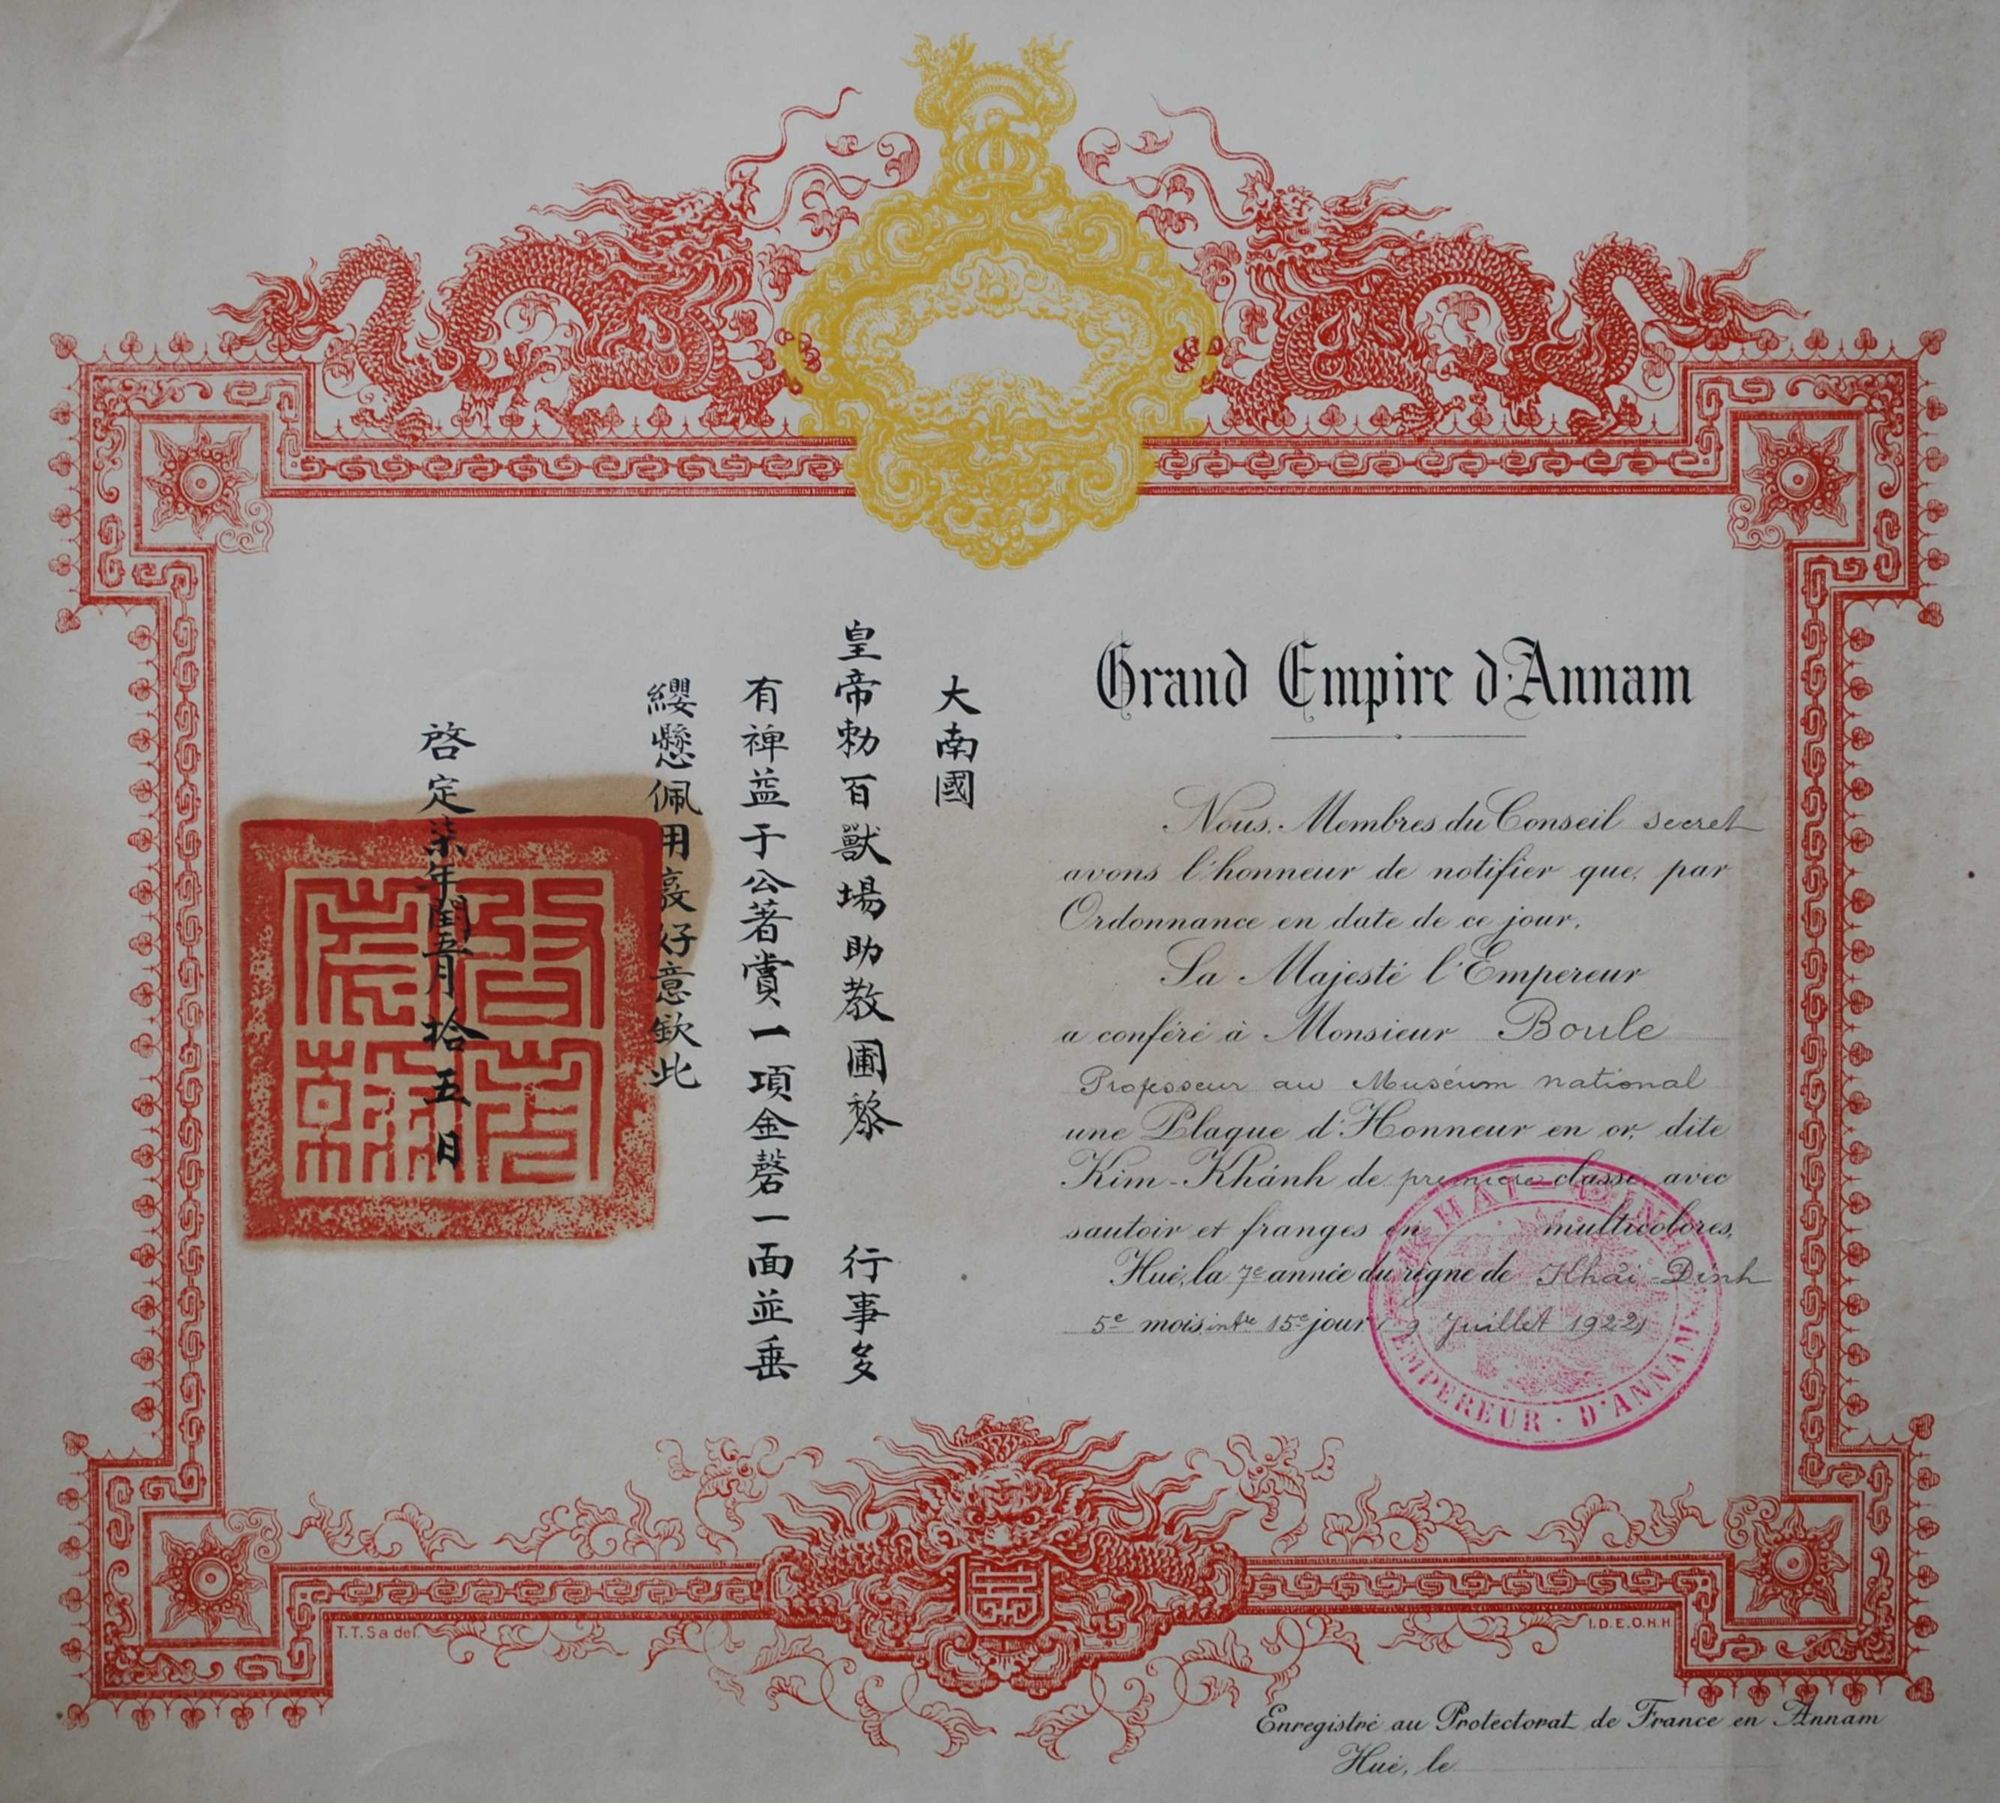 Grand Empire d'Annam
Nous, Membres du Conseil secret
avons l'honneur de notifier que, par
Ordonnance en date de ce jour,
Sa Majesté l'Empereur
a conféré à Monsieur Boule
Professeur au Muséum national
une Plaque d'Honneur en or, dite
Kim-Khánh de première classe, avec
sautoir et franges en multicolores,
Hué, la 7e année du règne de Khải-Dinh
5e mois intre 15e jour (9 Juillet 1922)
KHAI-DINH
EMPEREUR · D'ANNAM
大南國
皇帝勅百獸場助教圃黎 行事多
有裨益于公著賞一項金磬一面並垂
纓懸佩用衷好意欽此
啓定柒年閏五月拾五日
T.T.Sa del.
I.D.E.O.H.H
Enregistré au Protectorat de France en Annam
Hué, le